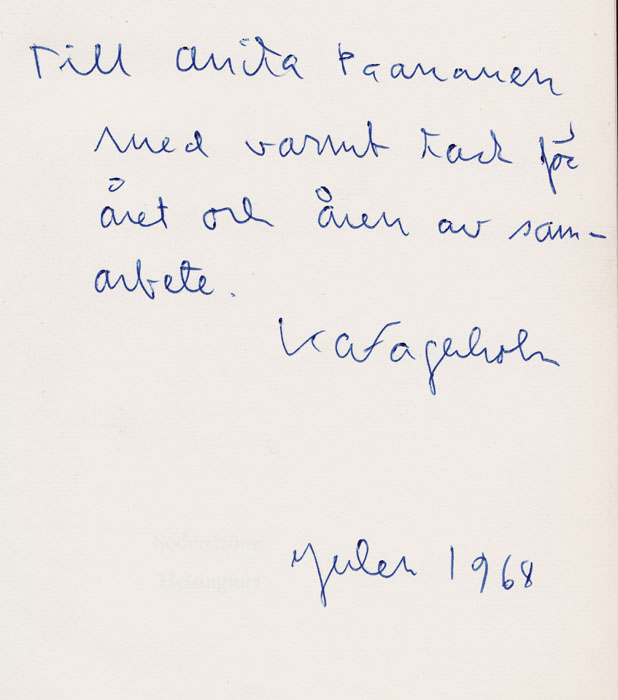 Till Anita Paananen
med varmt tack för
året och åren av sam-
arbete.
KAFagerholm
Söderströms
Helsingfors
Julen 1968